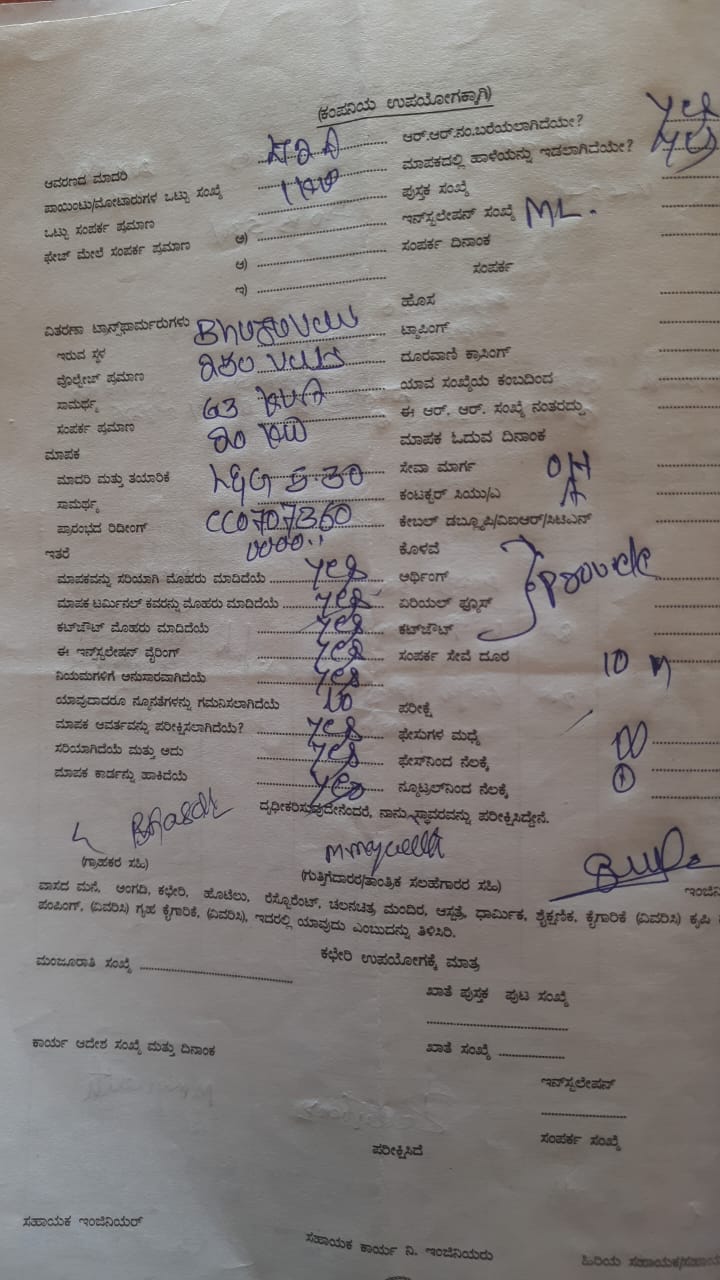 (ಕಂಪನಿಯ ಉಪಯೋಗಕ್ಕಾಗಿ)
ಆವರಣದ ಮಾದರಿ
ಆರ್.ಆರ್.ನಂ.ಬರೆಯಲಾಗಿದೆಯೇ? yes
ಪಾಯಿಂಟು/ಮೋಟಾರುಗಳ ಒಟ್ಟು ಸಂಖ್ಯೆ
ಮಾಪಕದಲ್ಲಿ ಹಾಳೆಯನ್ನು ಇಡಲಾಗಿದೆಯೇ? yes
ಒಟ್ಟು ಸಂಪರ್ಕ ಪ್ರಮಾಣ
ಪುಸ್ತಕ ಸಂಖ್ಯೆ
ಫೇಚ್ ಮೇಲೆ ಸಂಪರ್ಕ ಪ್ರಮಾಣ ಅ)
ಇನ್‌ಸ್ಟಲೇಷನ್ ಸಂಖ್ಯೆ ML.
ಆ)
ಸಂಪರ್ಕ ದಿನಾಂಕ
ಇ)
ಸಂಪರ್ಕ
ವಿತರಣಾ ಟ್ರಾನ್ಸ್‌ಫಾರ್ಮರುಗಳು
ಹೊಸ
ಇರುವ ಸ್ಥಳ
ಟ್ಯಾಪಿಂಗ್
ವೊಲ್ಟೇಜ್ ಪ್ರಮಾಣ
ದೂರವಾಣಿ ಕ್ರಾಸಿಂಗ್
ಸಾಮರ್ಥ್ಯ 63 KVA
ಯಾವ ಸಂಖ್ಯೆಯ ಕಂಬದಿಂದ
ಸಂಪರ್ಕ ಪ್ರಮಾಣ
ಈ ಆರ್. ಆರ್. ಸಂಖ್ಯೆ ನಂತರದ್ದು
ಮಾಪಕ
ಮಾಪಕ ಓದುವ ದಿನಾಂಕ
ಮಾದರಿ ಮತ್ತು ತಯಾರಿಕೆ
ಸೇವಾ ಮಾರ್ಗ OH
ಸಾಮರ್ಥ್ಯ
ಕಂಟಕ್ಟರ್ ಸಿಯು/ಎ A
ಪ್ರಾರಂಭದ ರಿಡೀಂಗ್
ಕೇಬಲ್ ಡಬ್ಲ್ಯೂಪಿ/ವಿಐಆರ್/ಸಿಟಿಎನ್
ಇತರೆ
ಕೊಳವೆ
ಮಾಪಕವನ್ನು ಸರಿಯಾಗಿ ಮೊಹರು ಮಾಡಿದೆಯೆ yes
ಅರ್ಥಿಂಗ್
ಮಾಪಕ ಟರ್ಮಿನಲ್ ಕವರನ್ನು ಮೊಹರು ಮಾಡಿದೆಯೆ yes
ಏರಿಯಲ್ ಫ್ಯೂಸ್
ಕಟ್‌ಔಟ್ ಮೊಹರು ಮಾಡಿದೆಯೆ yes
ಕಟ್‌ಔಟ್
ಈ ಇನ್ಸ್‌ಸ್ಟಲೇಷನ್ ವೈರಿಂಗ್ yes
ಸಂಪರ್ಕ ಸೇವೆ ದೂರ 10 m
ನಿಯಮಗಳಿಗೆ ಅನುಸಾರವಾಗಿದೆಯೆ yes
ಯಾವುದಾದರೂ ನ್ಯೂನತೆಗಳನ್ನು ಗಮನಿಸಲಾಗಿದೆಯೆ
ಪರೀಕ್ಷೆ
ಮಾಪಕ ಆವರ್ತವನ್ನು ಪರೀಕ್ಷಿಸಲಾಗಿದೆಯೆ? yes
ಫೇಸುಗಳ ಮಧ್ಯೆ
ಸರಿಯಾಗಿದೆಯೆ ಮತ್ತು ಅದು yes
ಫೇಸ್‌ನಿಂದ ನೆಲಕ್ಕೆ
ಮಾಪಕ ಕಾರ್ಡನ್ನು ಹಾಕಿದೆಯೆ yes
ನ್ಯೂಟ್ರಲ್‌ನಿಂದ ನೆಲಕ್ಕೆ
ದೃಢೀಕರಿಸುವುದೇನೆಂದರೆ, ನಾನು ಸ್ಥಾವರವನ್ನು ಪರೀಕ್ಷಿಸಿದ್ದೇನೆ.
(ಗ್ರಾಹಕರ ಸಹಿ)
(ಗುತ್ತಿಗೆದಾರರ/ತಾಂತ್ರಿಕ ಸಲಹೆಗಾರರ ಸಹಿ)
ವಾಸದ ಮನೆ, ಅಂಗಡಿ, ಕಛೇರಿ, ಹೊಟೆಲು, ರೆಸ್ಟೋರೆಂಟ್, ಚಲನಚಿತ್ರ ಮಂದಿರ, ಆಸ್ಪತ್ರೆ, ಧಾರ್ಮಿಕ, ಶೈಕ್ಷಣಿಕ, ಕೈಗಾರಿಕೆ (ವಿವರಿಸಿ) ಕೃಷಿ
ಪಂಪಿಂಗ್, (ವಿವರಿಸಿ) ಗೃಹ ಕೈಗಾರಿಕೆ, (ವಿವರಿಸಿ), ಇದರಲ್ಲಿ ಯಾವುದು ಎಂಬುದನ್ನು ತಿಳಿಸಿರಿ.
ಕಛೇರಿ ಉಪಯೋಗಕ್ಕೆ ಮಾತ್ರ
ಮಂಜೂರಾತಿ ಸಂಖ್ಯೆ
ಖಾತೆ ಪುಸ್ತಕ ಪುಟ ಸಂಖ್ಯೆ
ಕಾರ್ಯ ಆದೇಶ ಸಂಖ್ಯೆ ಮತ್ತು ದಿನಾಂಕ
ಖಾತೆ ಸಂಖ್ಯೆ
ಇನ್‌ಸ್ಟಲೇಷನ್
ಸಂಪರ್ಕ ಸಂಖ್ಯೆ
ಪರೀಕ್ಷಿಸಿದೆ
ಸಹಾಯಕ ಇಂಜಿನಿಯರ್
ಸಹಾಯಕ ಕಾರ್ಯ ನಿ. ಇಂಜಿನಿಯರು
ಹಿರಿಯ